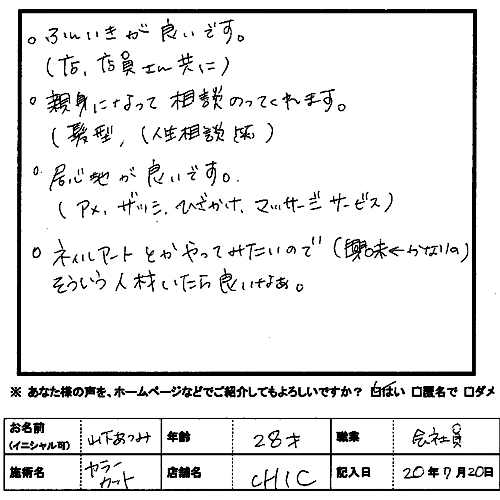 ○ ふんいきが良いです。
（店、店員さん共に）
○ 親身になって相談のってくれます。
（髪型、（人生相談 ）
○ 居心地が良いです。
（アメ、ザッシ、ひざかけ、マッサージサービス）
○ ネイルアートとかやってみたいので（興味←かなりの）
そういう人材いたら良いなぁ。
※ あなた様の声を、ホームページなどでご紹介してもよろしいですか？ ☑はい □匿名で □ダメ
お名前 (イニシャル可) 山下あつみ 年齢 28才 職業 会社員
施術名 カラー カット 店舗名 CHIC 記入日 20年7月20日